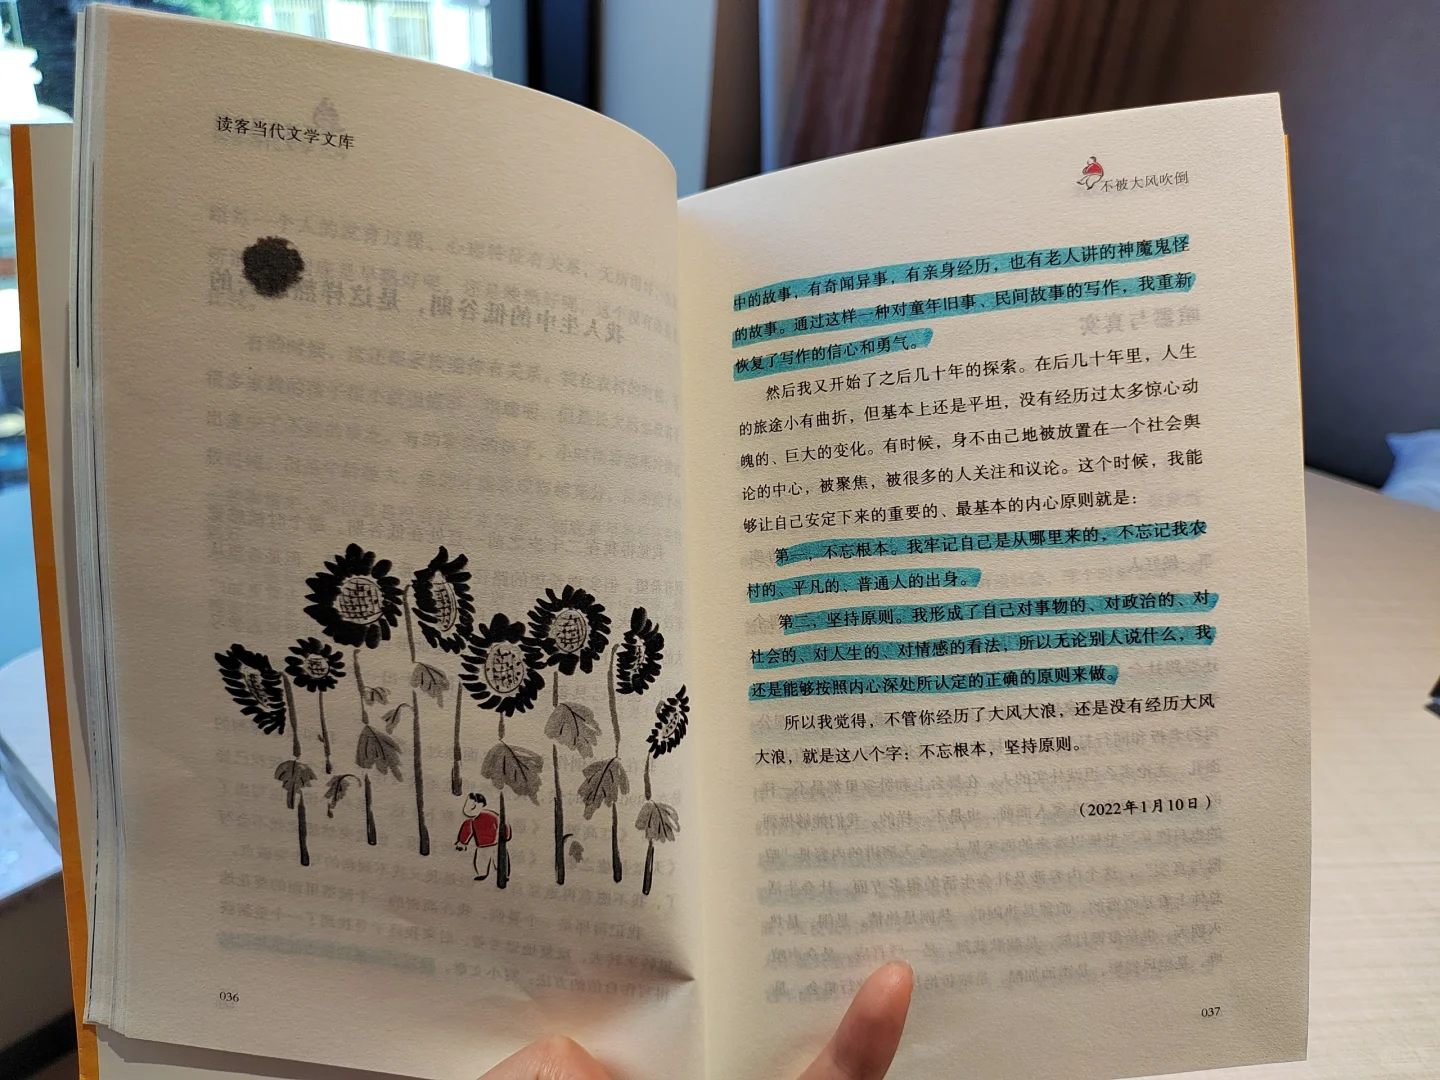 读客当代文学文库
036
不被大风吹倒
中的故事，有奇闻异事，有亲身经历，也有老人讲的神魔鬼怪
的故事。通过这样一种对童年旧事、民间故事的写作，我重新
恢复了写作的信心和勇气。
然后我又开始了之后几十年的探索。在后几十年里，人生
的旅途小有曲折，但基本上还是平坦，没有经历过太多惊心动
魄的、巨大的变化。有时候，身不由己地被放置在一个社会舆
论的中心，被聚焦，被很多的人关注和议论。这个时候，我能
够让自己安定下来的重要的、最基本的内心原则就是：
第一，不忘根本。我牢记自己是从哪里来的，不忘记我农
村的、平凡的、普通人的出身。
第二，坚持原则。我形成了自己对事物的、对政治的、对
社会的、对人生的、对情感的看法，所以无论别人说什么，我
还是能够按照内心深处所认定的正确的原则来做。
所以我觉得，不管你经历了大风大浪，还是没有经历大风
大浪，就是这八个字：不忘根本，坚持原则。
（2022年1月10日）
037